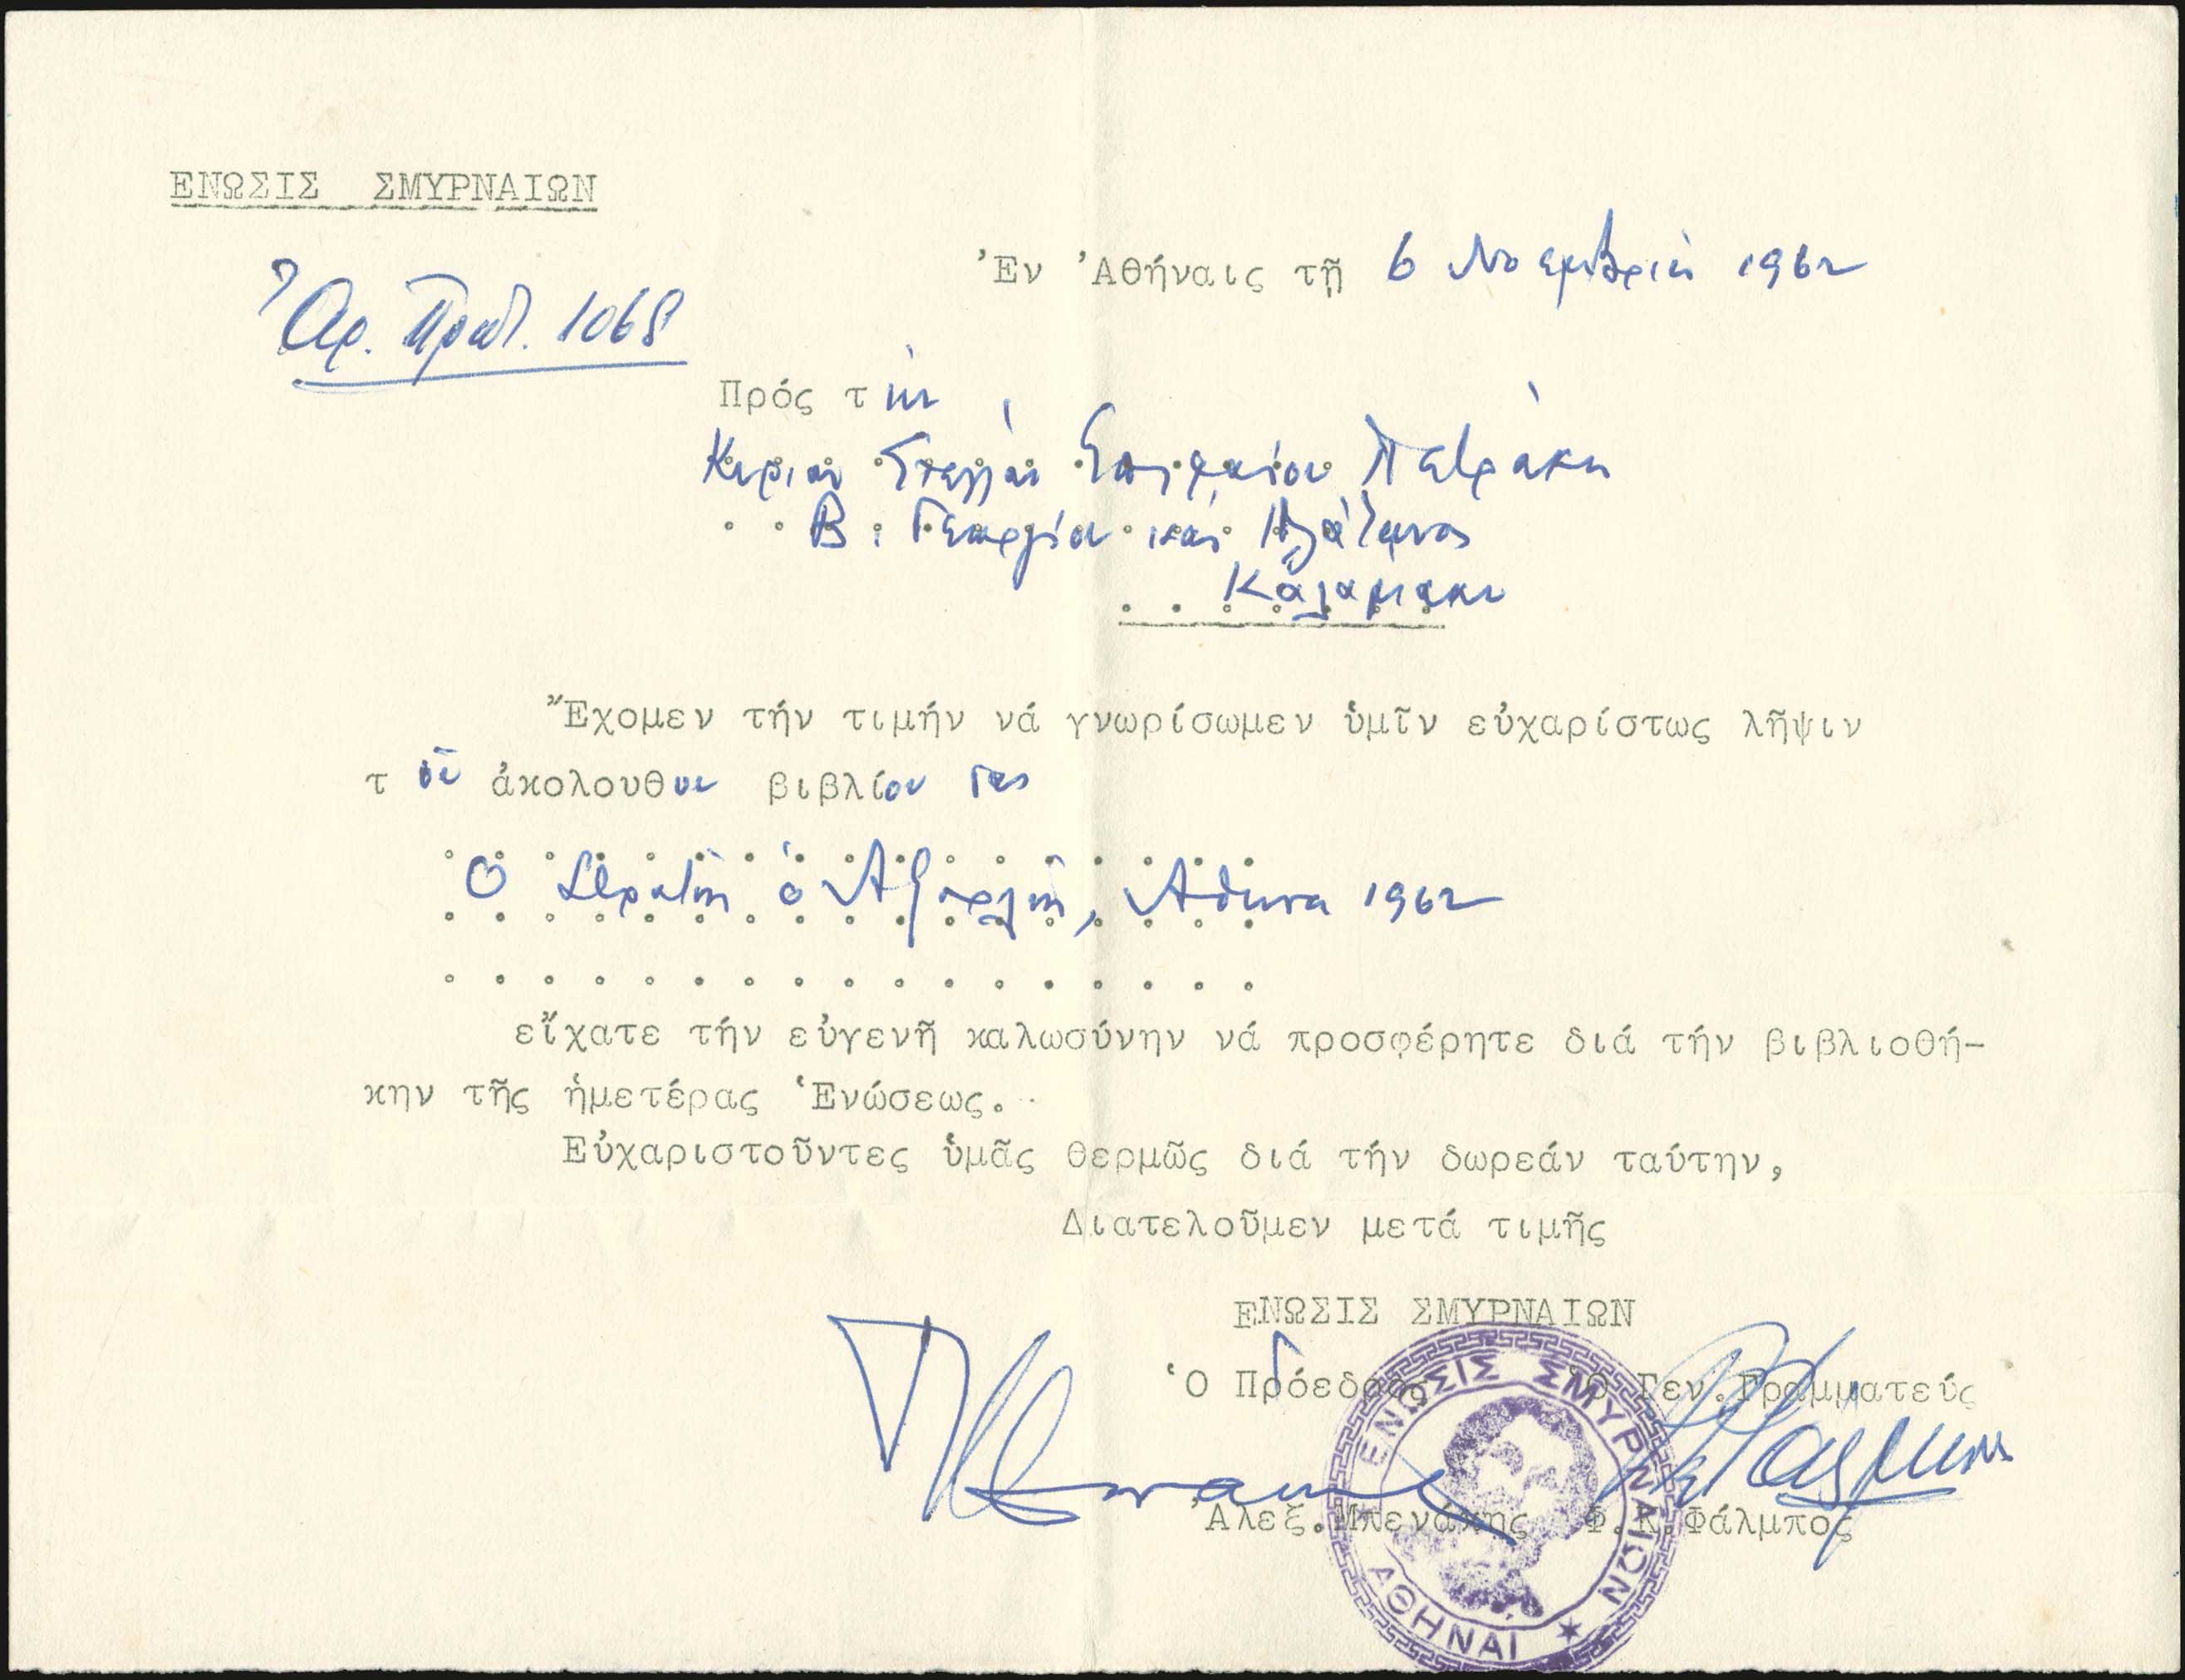 ΕΝΩΣΙΣ ΣΜΥΡΝΑΙΩΝ
Ἀρ. Πρωτ. 1068
Ἐν Ἀθήναις τῇ 6 Νοεμβρίου 1962
Πρός τήν
Κυρίαν Στέλλαν Ἐπιφανίου Πετράκη
Β. Γεωργίου καί Πλάτωνος
Καλαμάκι
Ἔχομεν τήν τιμήν νά γνωρίσωμεν ὑμῖν εὐχαρίστως λῆψιν
τοῦ ἀκολούθου βιβλίου σας
Ο Στρατής ὁ Ἀθήνα 1962
εἴχατε τήν εὐγενῆ καλωσύνην νά προσφέρητε διά τήν βιβλιοθή-
κην τῆς ἡμετέρας Ἑνώσεως.
Εὐχαριστοῦντες ὑμᾶς θερμῶς διά τήν δωρεάν ταύτην,
Διατελοῦμεν μετά τιμῆς
ΕΝΩΣΙΣ ΣΜΥΡΝΑΙΩΝ
Ὁ Πρόεδρος Ὁ Γεν. Γραμματεύς
Ἀλεξ. Μπενάκης Φ.Κ. Φάλμπος
ΕΝΩΣΙΣ ΣΜΥΡΝΑΙΩΝ ΑΘΗΝΑΙ